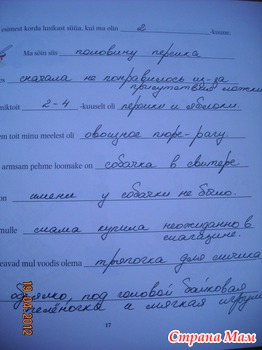 esimest korda lusikast süüa, kui ma olin 2 kuune.
Ma sõin siis половину персика
сначала не понравилось из-за
присутствия ложки
2-4 -kuuselt oli персики и яблоки.
em toit minu meelest oli овощное пюре-рагу.
armsam pehme loomake on собачка в свитере
on имени у собачки не было.
mulle мама купила неожиданно в
магазине.
eavad mul voodis olema тряпочка для
одеяло, под головой байковая
пелёночка а мягкая
17
19 2012
Страна Мам